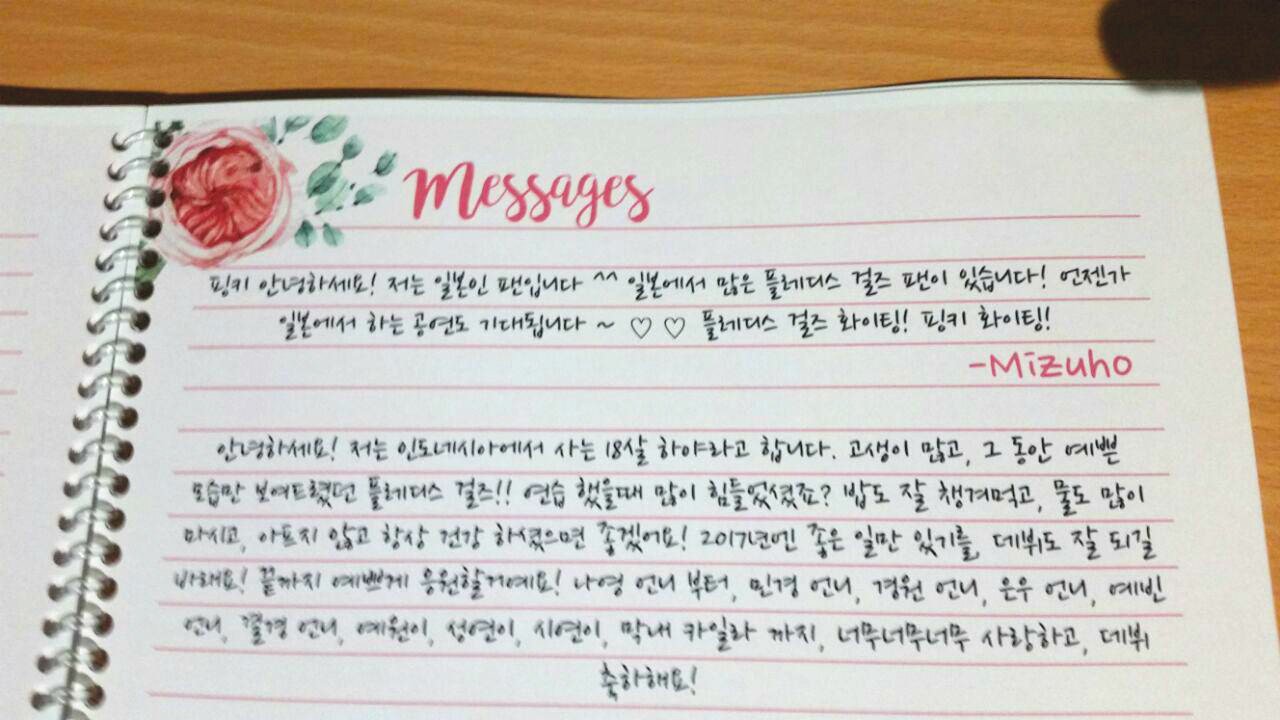 Messages
핑키 안녕하세요! 저는 일본인 팬입니다 ^^ 일본에서 많은 플레디스 걸즈 팬이 있습니다! 언젠가
일본에서 하는 공연도 기대됩니다 ~ ♡ ♡ 플레디스 걸즈 화이팅! 핑키 화이팅!
-Mizuho
안녕하세요! 저는 인도네시아에서 사는 18살 하야라고 합니다. 고생이 많고, 그 동안 예쁜
모습만 보여트렸던 플레디스 걸즈!! 연습 했을때 많이 힘들었셨죠? 밥도 잘 챙겨먹고, 물도 많이
마시고, 아프지 않고 항상 건강 하셨으면 좋겠어요! 2017년엔 좋은 일만 있기를, 데뷔도 잘 되길
바래요! 끝까지 예쁘게 응원할거예요! 나영 언니 부터, 민경 언니, 경원 언니, 은우 언니, 예빈
언니, 결경 언니, 예원이, 성연이, 시연이, 막내 카일라 까지, 너무너무너무 사랑하고, 데뷔
축하해요!